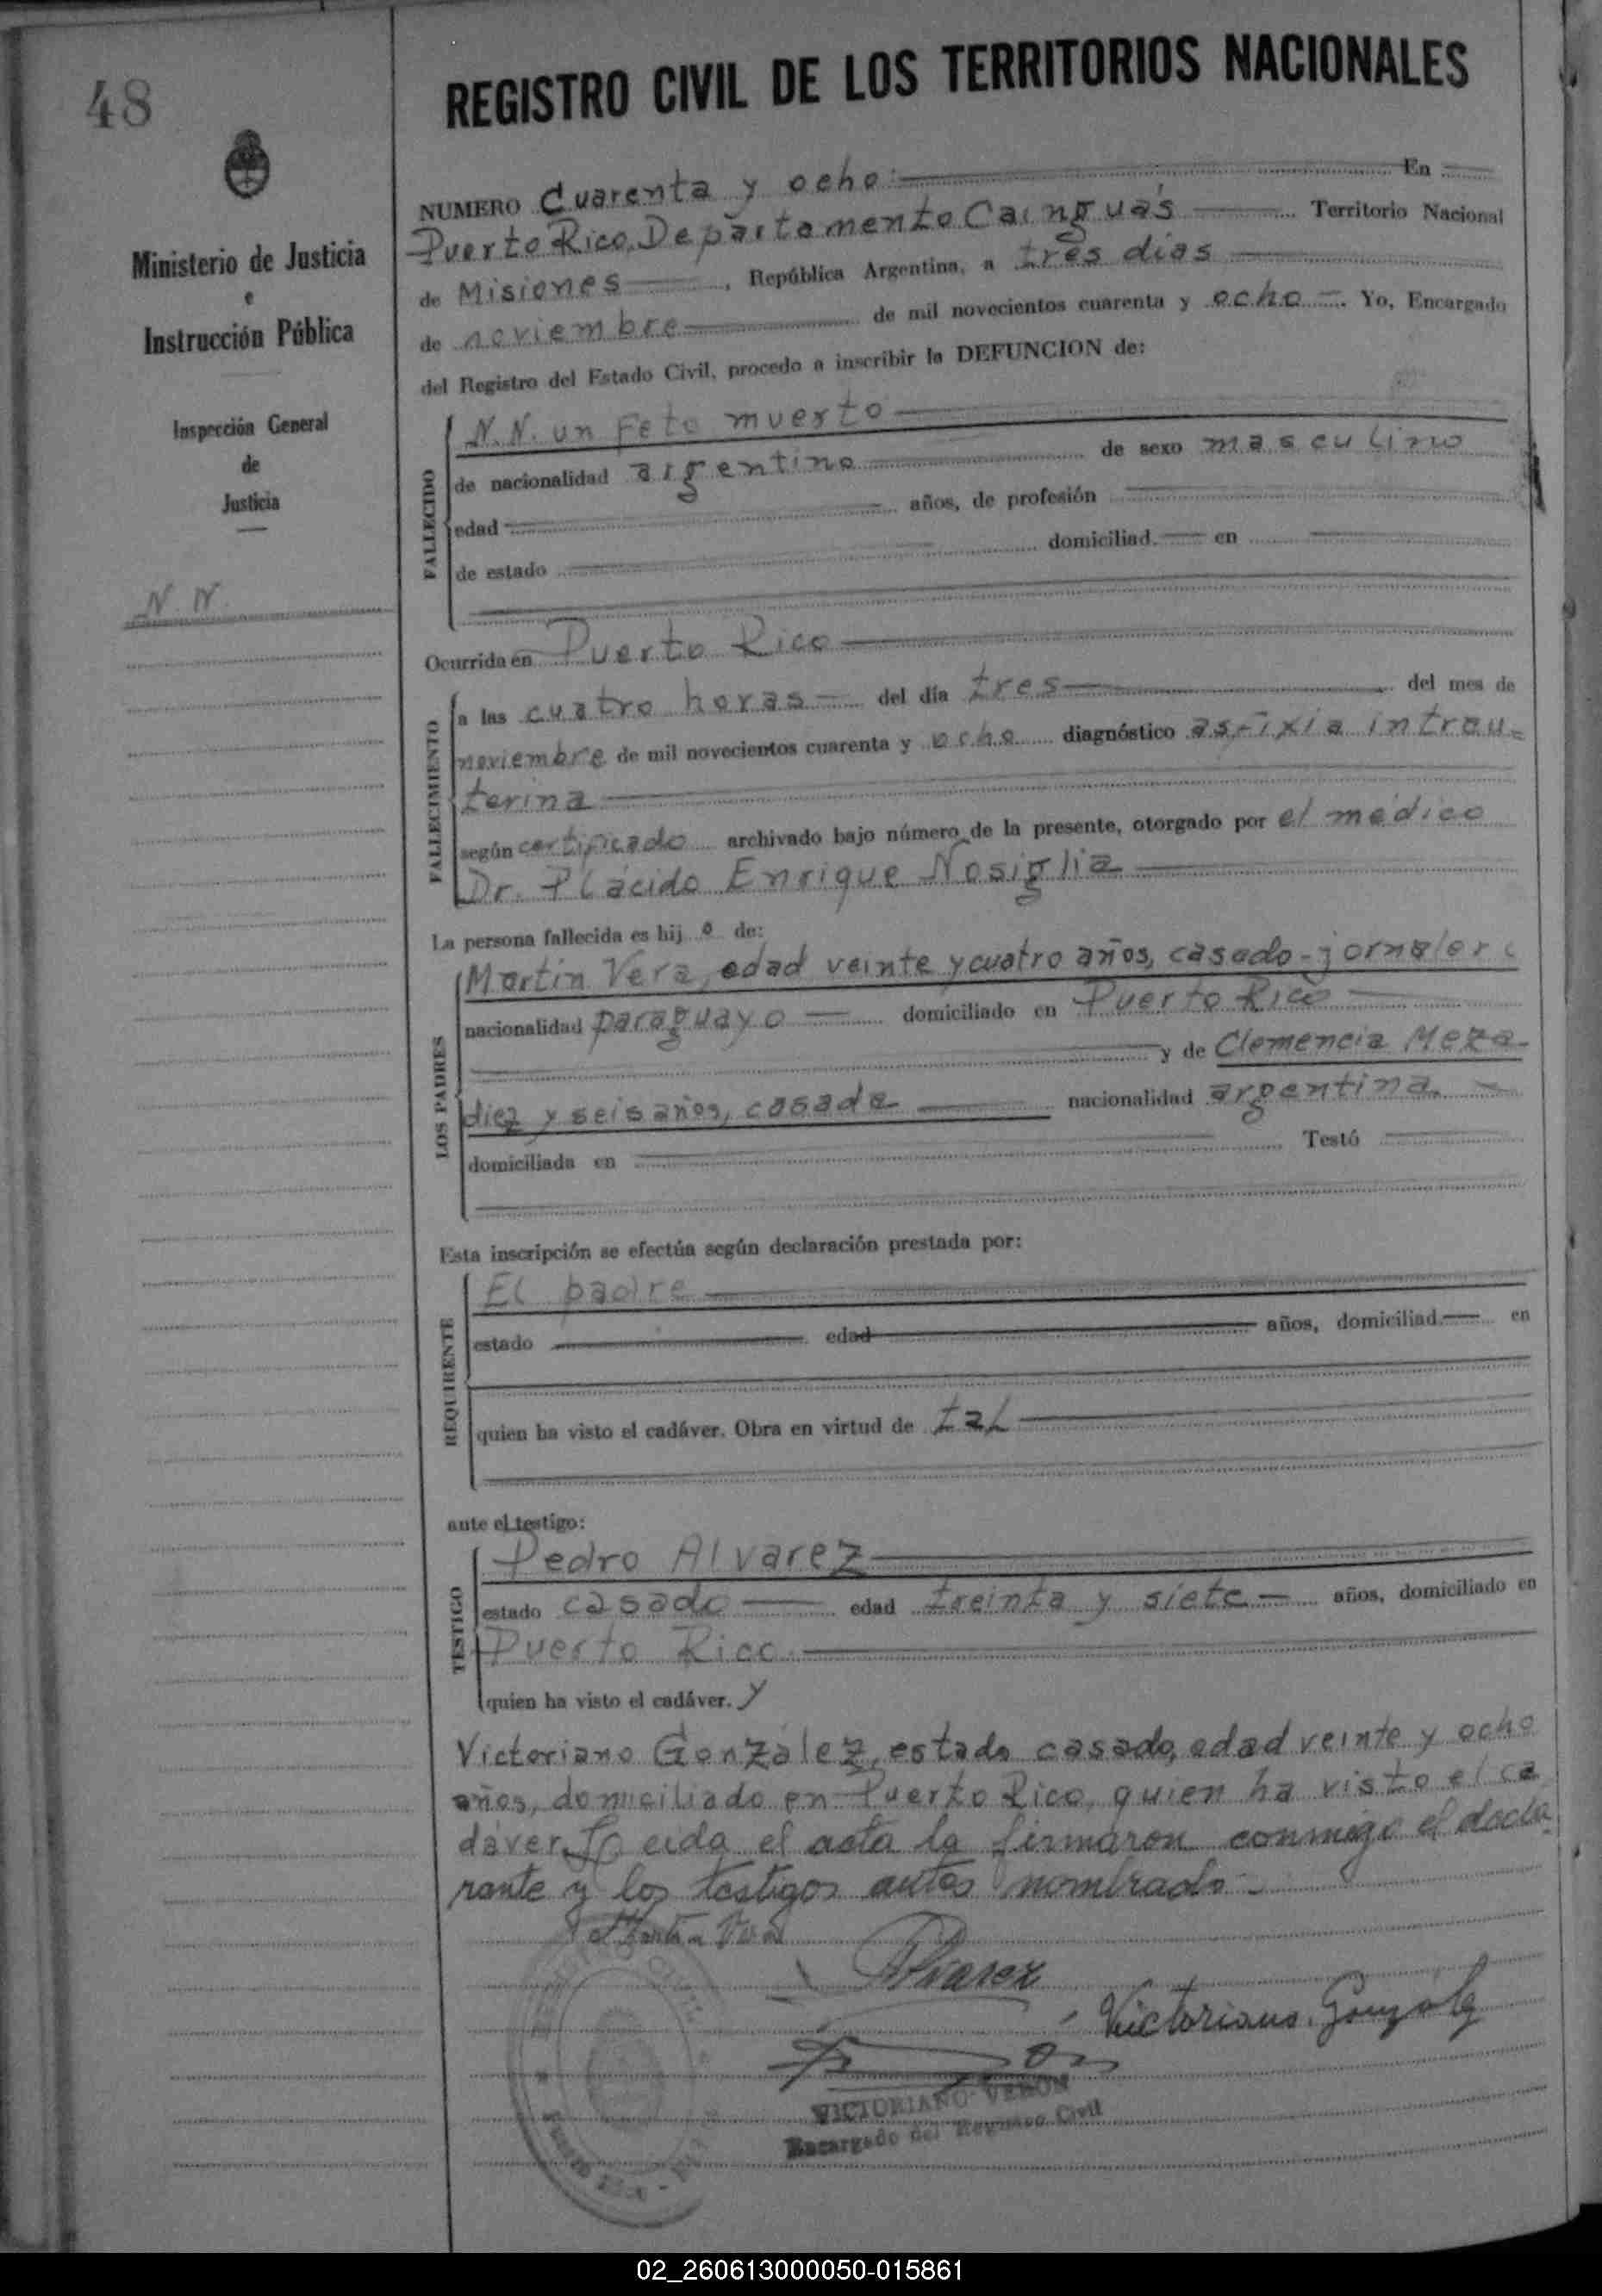 48
REGISTRO CIVIL DE LOS TERRITORIOS NACIONALES
Ministerio de Justicia
e
Instrucción Pública
Inspección General
de
Justicia
N. N.
NUMERO Cuarenta y ocho En
Puerto Rico, Departamento Cainguás Territorio Nacional
de Misiones, República Argentina, a tres dias
de noviembre de mil novecientos cuarenta y ocho. Yo, Encargado
del Registro del Estado Civil, procedo a inscribir la DEFUNCION de:
FALLECIDO
N. N. un Feto muerto
de nacionalidad argentino de sexo masculino
edad años, de profesión
de estado domiciliad en
Ocurrida en Puerto Rico
FALLECIMIENTO
a las cuatro horas del día tres del mes de
noviembre de mil novecientos cuarenta y ocho diagnóstico asfixia intrau=
terina
según certificado archivado bajo número de la presente, otorgado por el médico
Dr. Plácido Enrique Nosiglia
La persona fallecida es hij o de:
LOS PADRES
Martin Vera, edad veinte y cuatro años, casado - jornalero
nacionalidad paraguayo domiciliado en Puerto Rico
y de Clemencia Meza
diez y seis años, casada nacionalidad argentina
domiciliada en Testó
Esta inscripción se efectúa según declaración prestada por:
REQUIRENTE
El padre
estado edad años, domiciliad en
quien ha visto el cadáver. Obra en virtud de tal
ante el testigo:
TESTIGO
Pedro Alvarez
estado casado edad treinta y siete años, domiciliado en
Puerto Rico
quien ha visto el cadáver. y
Victoriano González, estado casado, edad veinte y ocho
años, domiciliado en Puerto Rico, quien ha visto el ca
dáver. Leida el acta la firmaron conmigo el decla
rante y los testigos antes nombrado
Martin Vera
Alvarez
Victoriano Gonzalez
VICTORIANO VERON
Encargado del Registro Civil
02_260613000050-015861